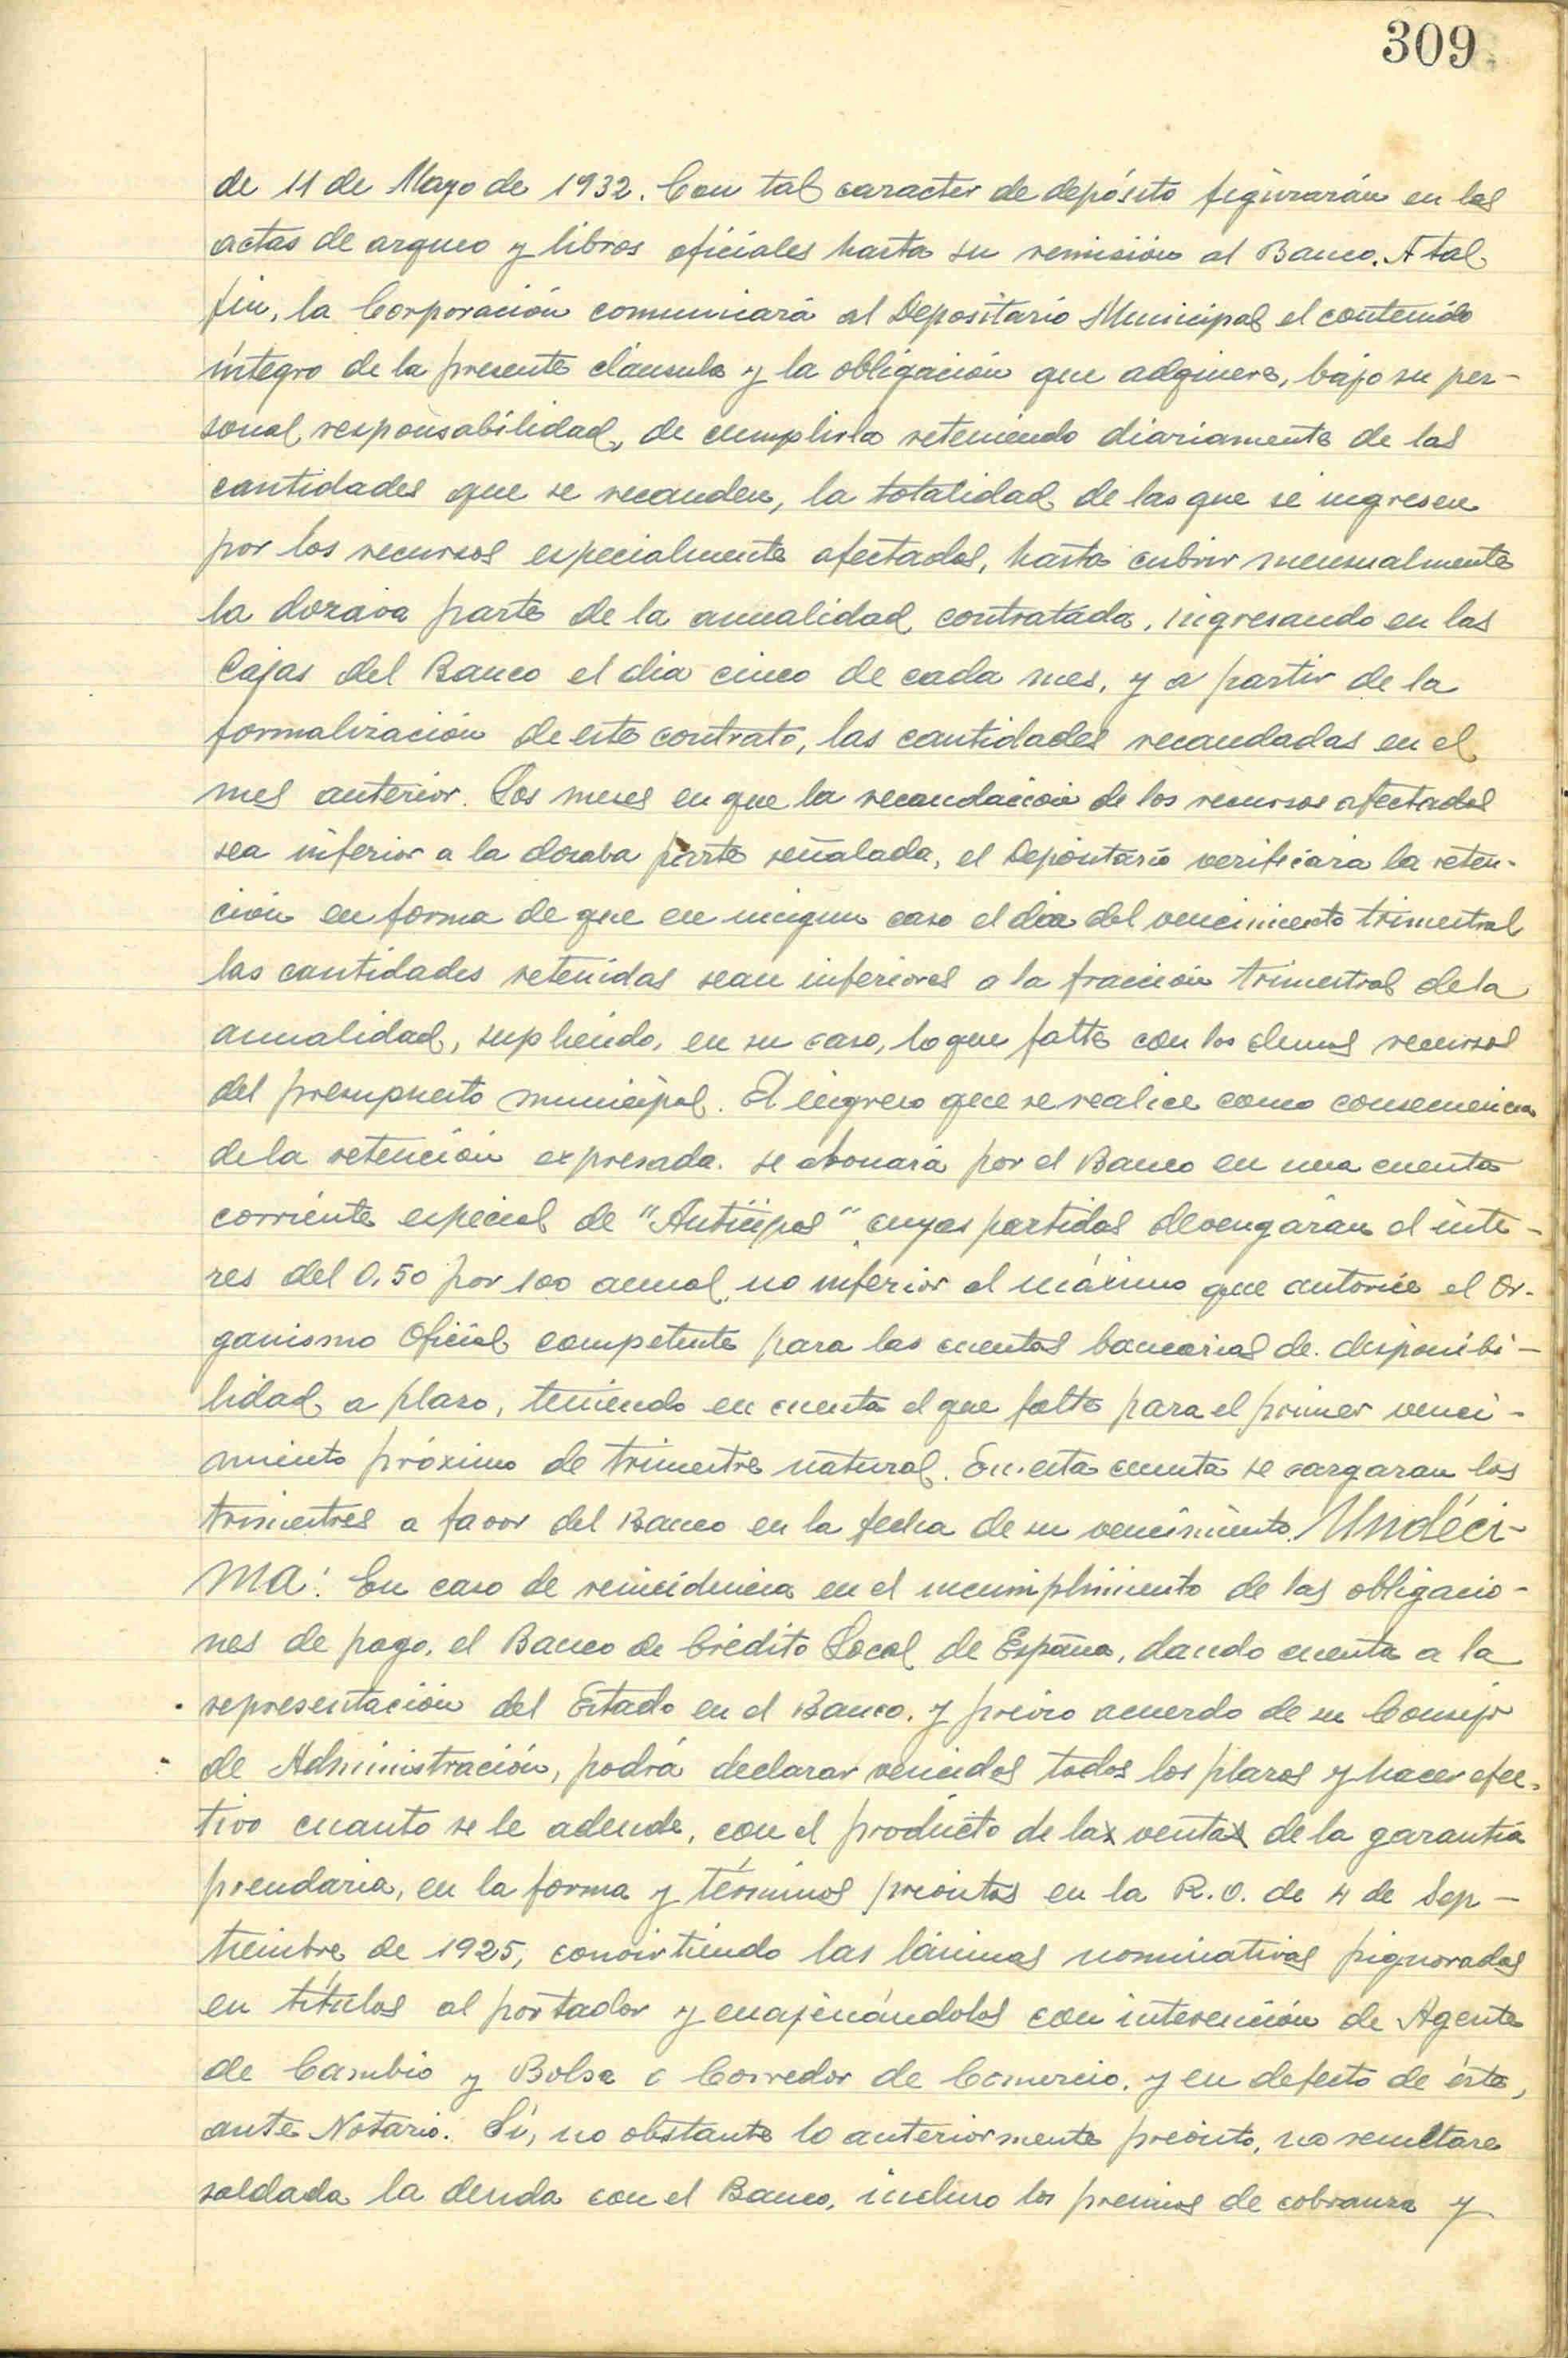 309
de 11 de Mayo de 1932. Con tal caracter de depósito figurarán en las
actas de arqueo y libros oficiales hasta su remisión al Banco. A tal
fin, la Corporación comunicará al Depositario Municipal el contenido
íntegro de la presente cláusula y la obligación que adquiere, bajo su per-
sonal responsabilidad, de cumplirla reteniendo diariamente de las
cantidades que se recauden, la totalidad de las que se ingresen
por los recursos especialmente afectados, hasta cubrir mensualmente
la dozava parte de la anualidad contratada, ingresando en las
Cajas del Banco el dia cinco de cada mes, y a partir de la
formalización de este contrato, las cantidades recaudadas en el
mes anterior. Los meses en que la recaudación de los recursos afectados
sea inferior a la dozaba parte señalada, el Depositario verificará la reten-
ción en forma de que en ningun caso el dia del vencimiento trimestral
las cantidades retenidas sean inferiores a la fracción trimestral de la
anualidad, supliendo, en su caso, lo que falte con los demas recursos
del presupuesto municipal. El ingreso que se realice como consecuencia
de la retención expresada se abonará por el Banco en una cuenta
corriente especial de "Anticipos" cuyas partidas devengarán el inte-
res del 0,50 por 100 anual, no inferior al máximo que autorice el Or-
ganismo Oficial competente para las cuentas bancarias de disponibi-
lidad a plazo, teniendo en cuenta el que falte para el primer venci-
miento próximo de trimestre natural. En esta cuenta se cargaran los
trimestres a favor del Banco en la fecha de su vencimiento. Undéci-
ma: En caso de reincidencia en el incumplimiento de las obligacio-
nes de pago, el Banco de Crédito Local de España, dando cuenta a la
representación del Estado en el Banco, y previo acuerdo de su Consejo
de Administración, podrá declarar vencidos todos los plazos y hacer efec-
tivo cuanto se le adeude, con el producto de la venta de la garantía
prendaria, en la forma y términos previstos en la R.O. de 4 de Sep-
tiembre de 1925, convirtiendo las láminas nominativas pignoradas
en títulos al portador y enajenándolos con intervención de Agente
de Cambio y Bolsa o Corredor de Comercio, y en defecto de éste,
ante Notario. Si, no obstante lo anteriormente previsto, no resultare
saldada la deuda con el Banco, incluso los premios de cobranza y